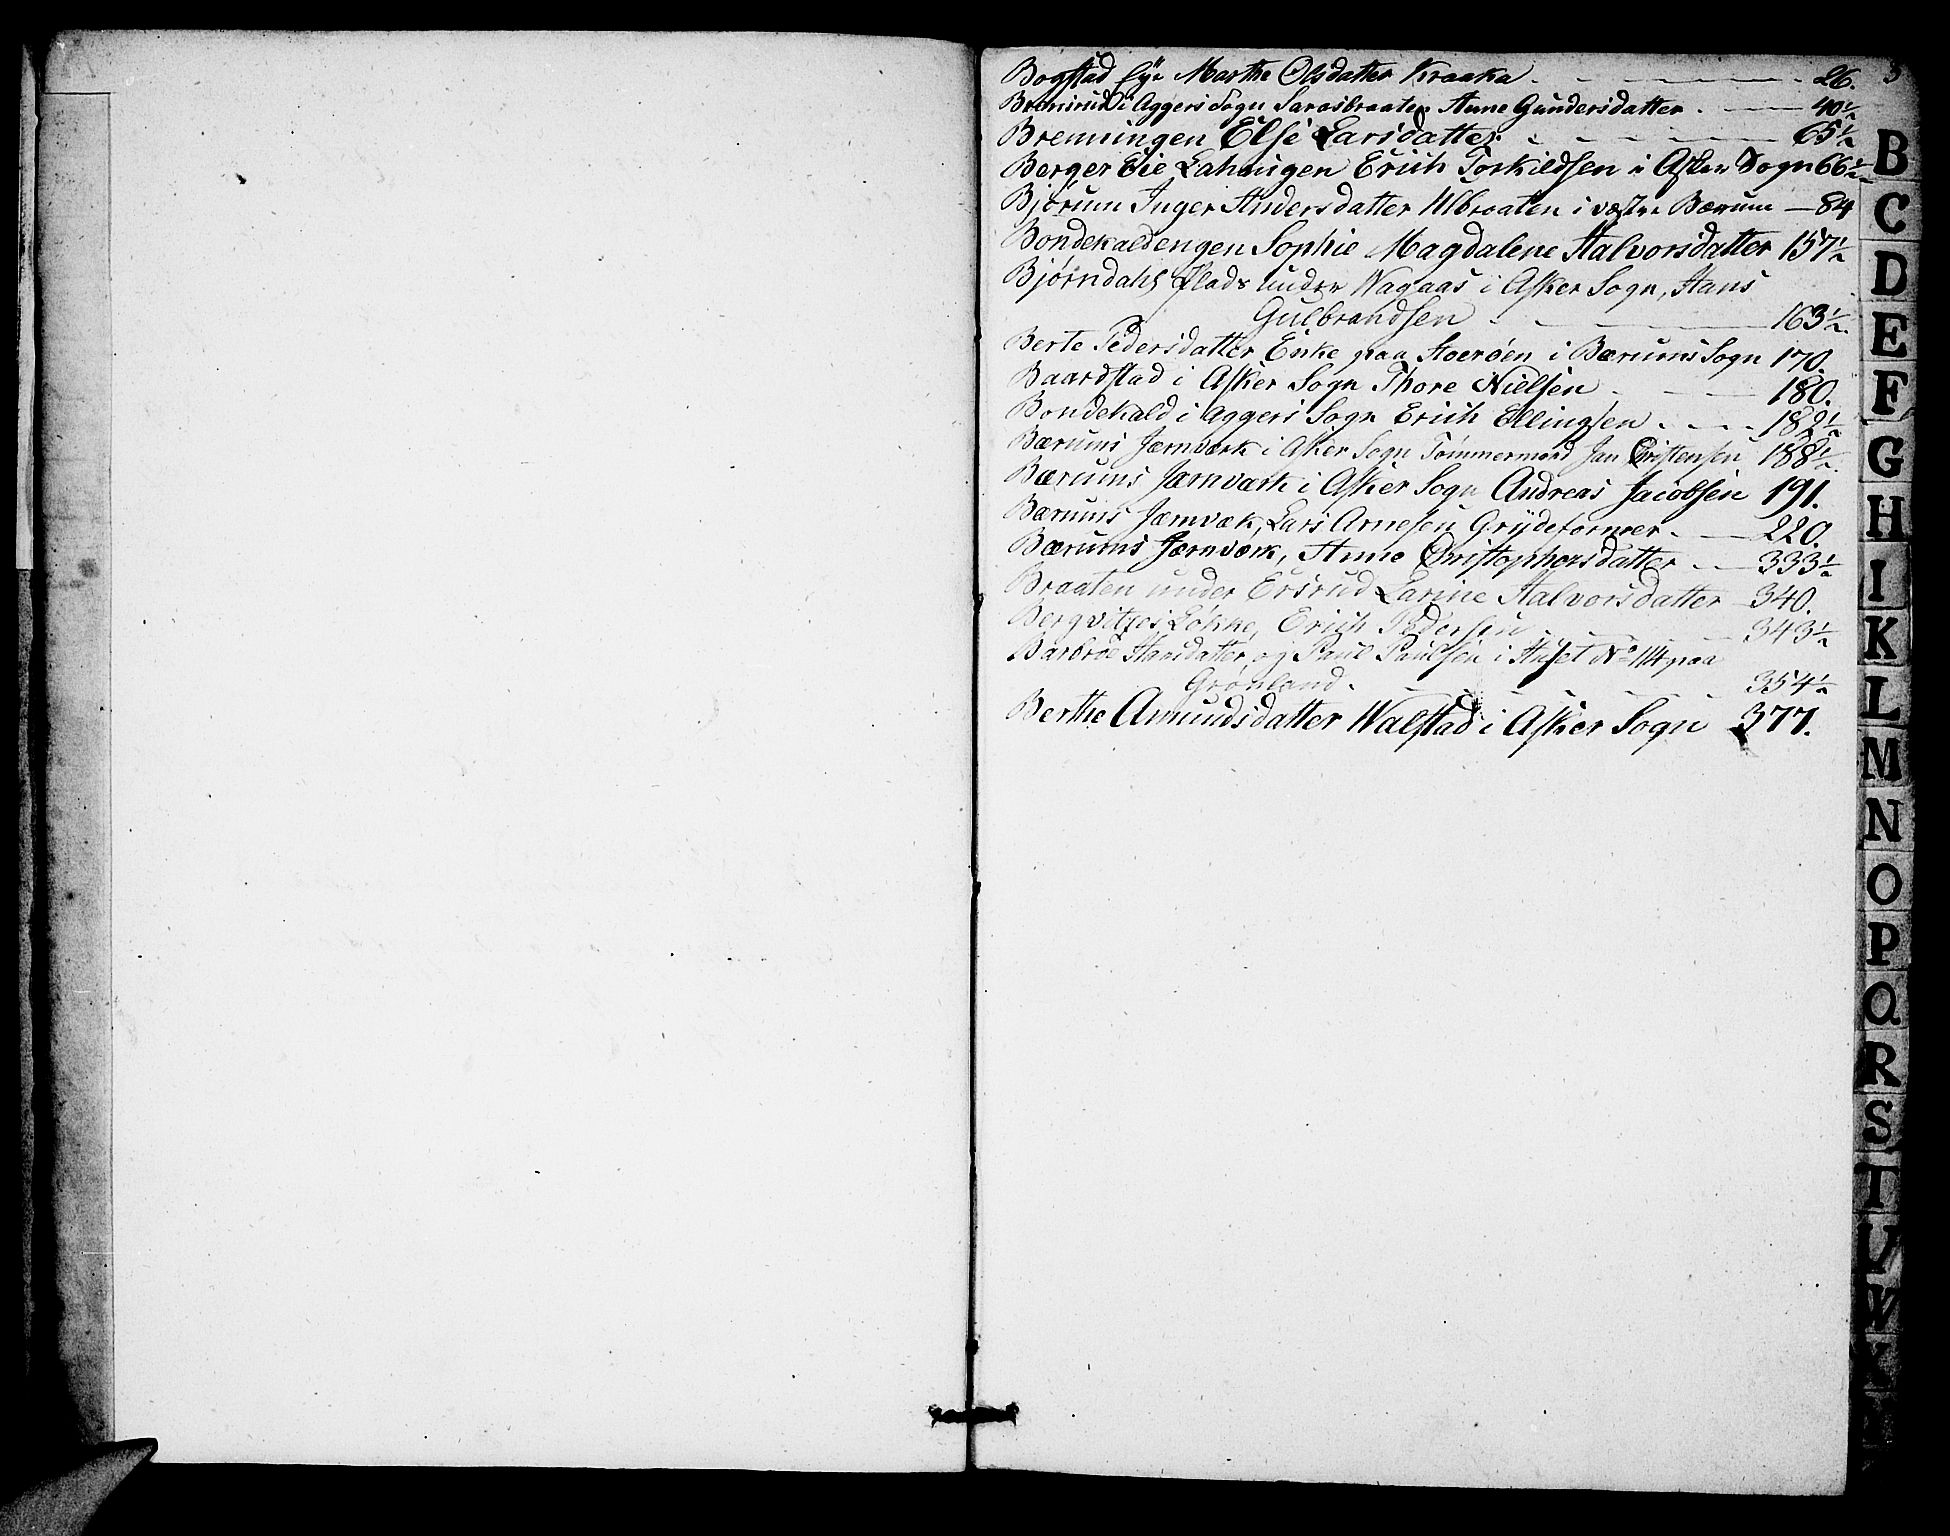 Bogstad Marthe Olsdatter Kraaka - - - 26. 3
i Aggers Sogn Sarasbraaten Anne Gundersdatter . - 40½
Brenningen Else Larsdatter. - - - 65½
Berger Eie Erich Torkildsen i Asker Sogn 66½
Bjørum Inger Andersdatter Ulbraaten i vestre Bærum — 84
Bondekaldengen Sophie Magdalene Halvorsdatter 157½
Bjørndahl Plads under Wagaas i Asker Sogn, Hans
Gulbrandsen - - - 163½.
Berte Pedersdatter Enke paa Stoerøen i Bærums Sogn 170.
Baardstad i Asker Sogn Thore Nielsen . - - 180.
Bondekald i Aggers Sogn Erich Ellingsen . - - - 182½
Bærums Jærnværk i Asker Sogn Tømmermand Jan Cristensen 188½.
Bærums Jærnværk i Asker Sogn Andreas Jacobsen 191.
Bærums Jærnvæk, Lars Arnesen Grydeformer. - 220.
Bærums Jærnværk, Anne Christophersdatter . - 333½
Braaten under Ersrud Larine Halvorsdatter - 340.
Bergvitzes Løkke, Erich Pedersen - - - 343½
Barbroe Hansdatter, og Paul Paulsen i Huset No 114 paa
Grønland. - - - 354½
Berthe Amundsdatter Walstad i Asker Sogn 377.
B
C
D
E
F
G
H
I
K
L
M
N
O
P
Q
R
S
T
U
W